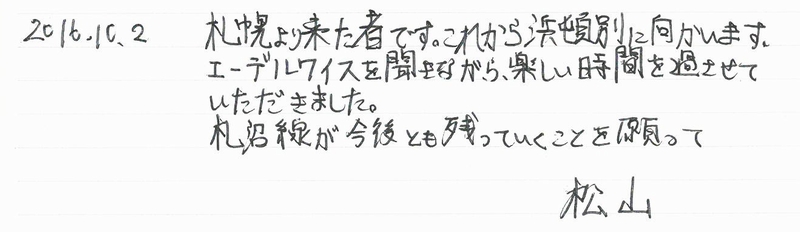 2016.10.2 札幌より来た者です。これから浜頓別に向かいます。
エーデルワイスを聞きながら、楽しい時間を過させて
いただきました。
札沼線が今後とも残っていくことを願って
松山